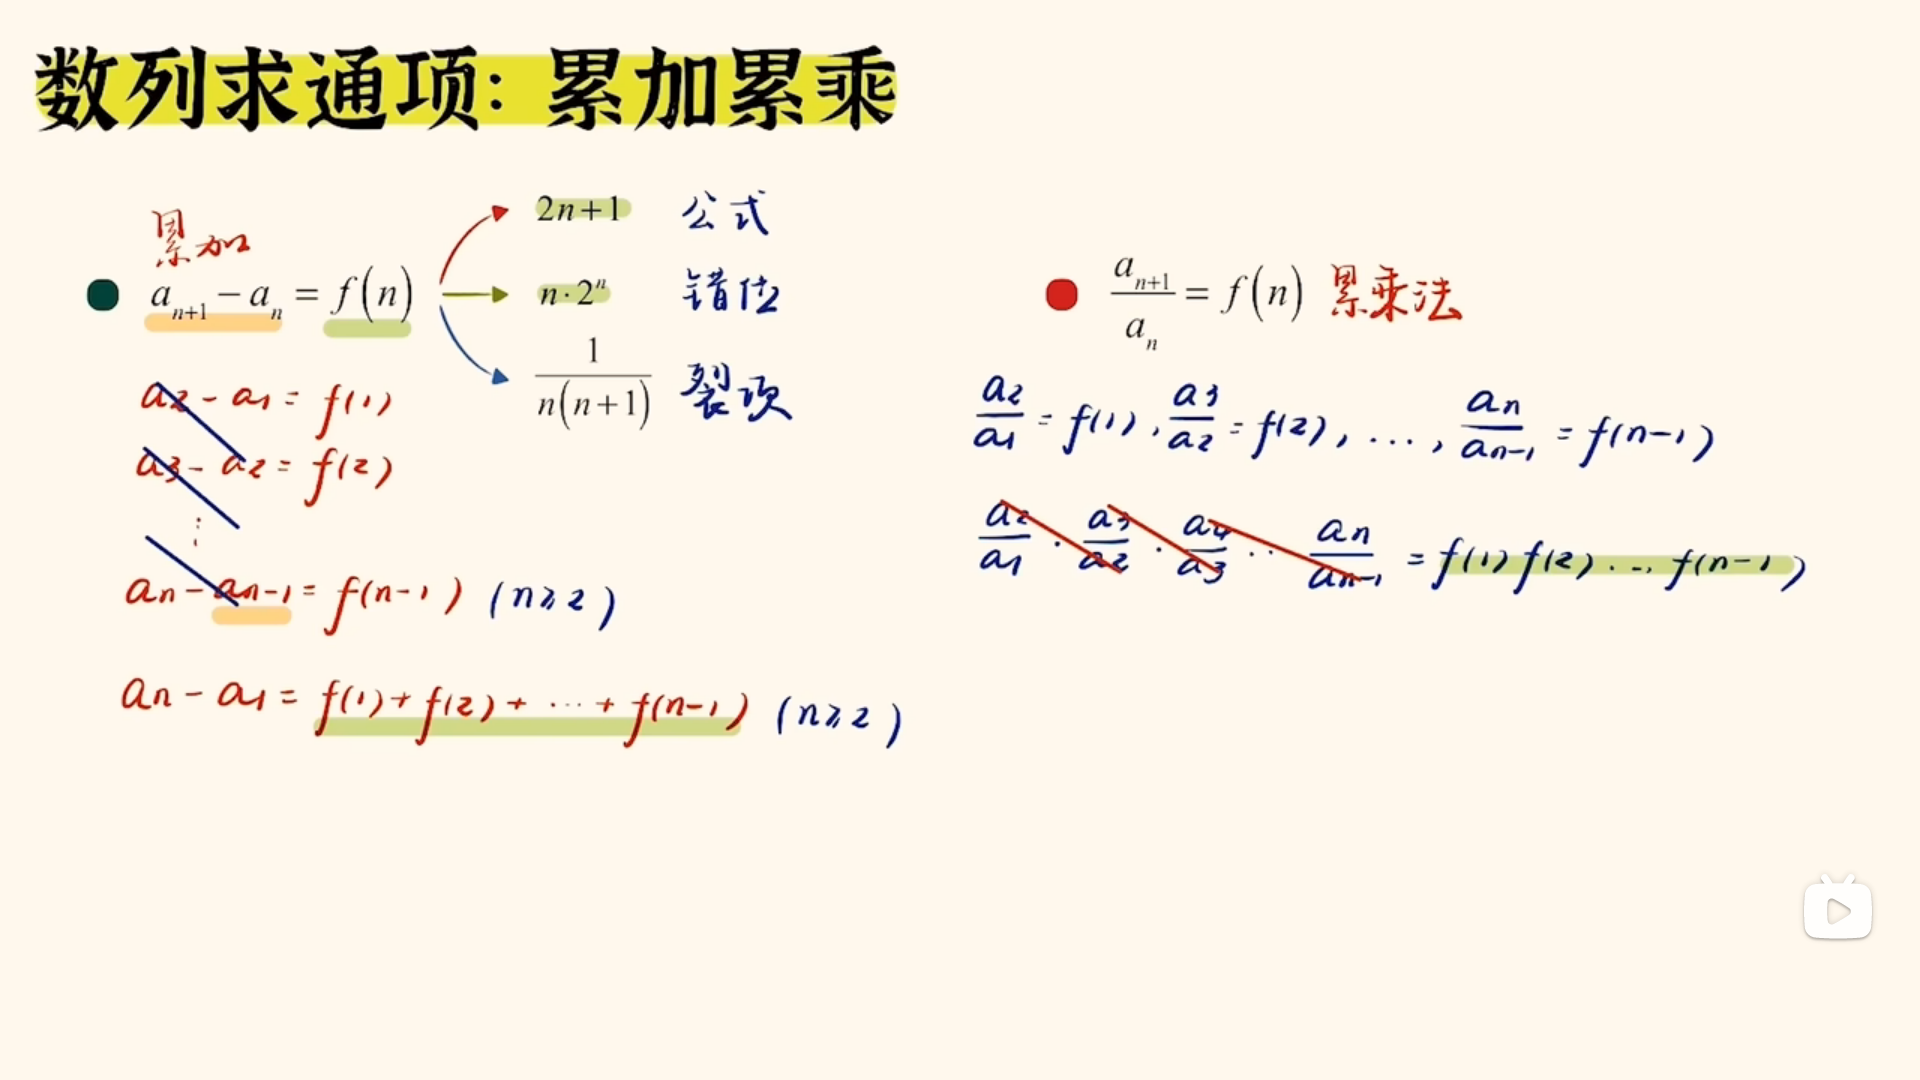 数列求通项：累加累乘
累加
a_{n+1} - a_n = f(n)
2n+1 公式
n·2^n 错位
1/(n(n+1)) 裂项
a2 - a1 = f(1)
a3 - a2 = f(2)
⋮
an - an-1 = f(n-1) (n≥2)
an - a1 = f(1) + f(2) + ⋯ + f(n-1) (n≥2)
a_{n+1}/a_n = f(n) 累乘法
a2/a1 = f(1), a3/a2 = f(2), ⋯, an/an-1 = f(n-1)
a2/a1 · a3/a2 · a4/a3 ·· an/an-1 = f(1) f(2) ⋯ f(n-1)